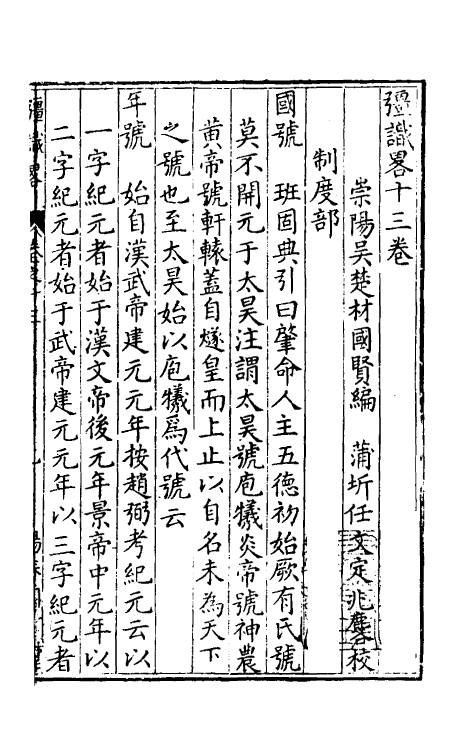 彊識畧十三卷
崇陽吳楚材國賢編　蒲圻任文定兆麐校
制度部
國號　班固典引曰肇命人主五德初始厥有氏號
莫不開元于太昊注謂太昊號庖犧炎帝號神農
黄帝號軒轅蓋自燧皇而上止以自名未為天下
之號也至太昊始以庖犧爲代號云
年號　始自漢武帝建元元年按趙弼考紀元云以
一字紀元者始于漢文帝後元年景帝中元年以
二字紀元者始于武帝建元元年以三字紀元者
彊識畧